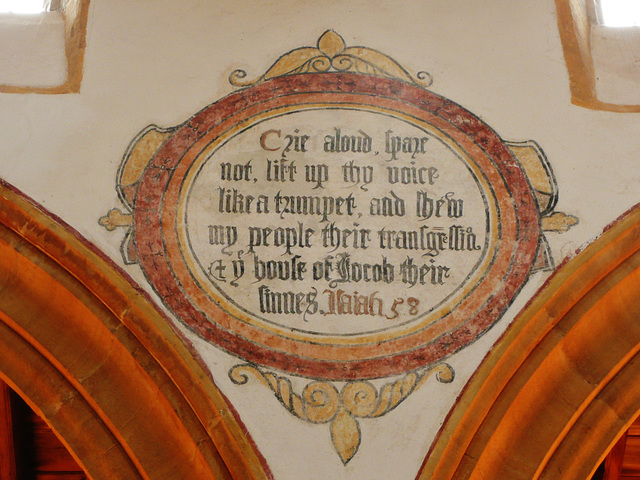 Crie aloud, spare
not, lift up thy voice
like a trumpet, and shew
my people their transgr̃ssiõ.
& yͤ house of Jacob their
sinnes. Isaiah 58